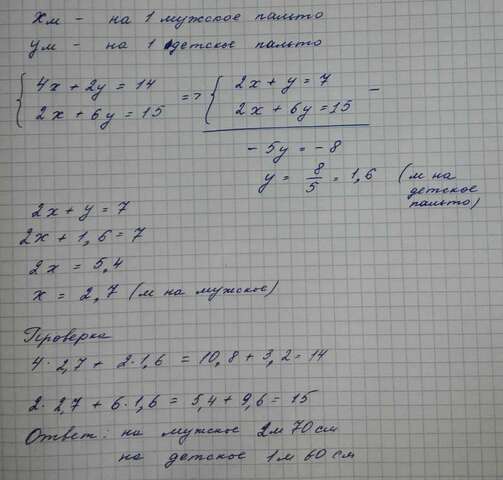 x м - на 1 мужское пальто
y м - на 1 детское пальто
{ 4x + 2y = 14 => { 2x + y = 7 -
{ 2x + 6y = 15 { 2x + 6y = 15
- 5y = - 8
y = 8/5 = 1,6 (м на детское пальто)
2x + y = 7
2x + 1,6 = 7
2x = 5,4
x = 2,7 (м на мужское)
Проверка
4 · 2,7 + 2 · 1,6 = 10,8 + 3,2 = 14
2 · 2,7 + 6 · 1,6 = 5,4 + 9,6 = 15
Ответ: на мужское 2м 70 см
на детское 1м 60 см